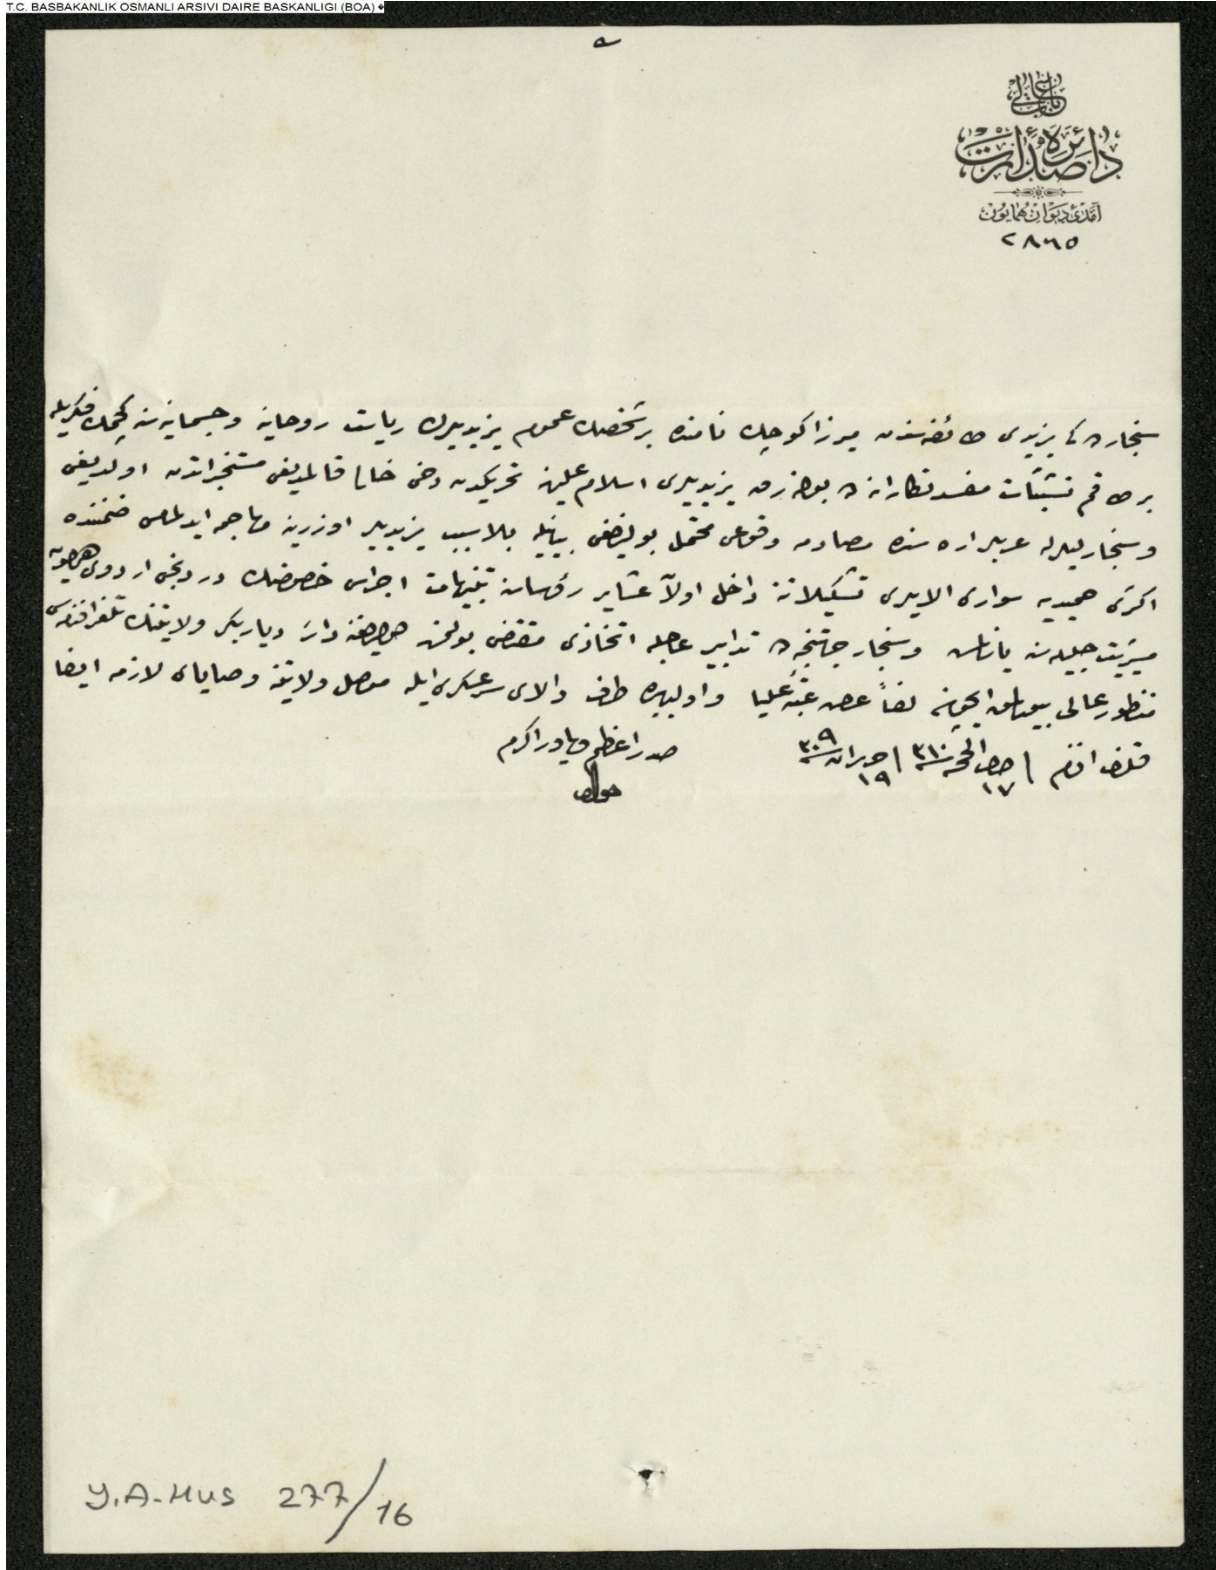 T.C. BASBAKANLIK OSMANLI ARSIVI DAIRE BASKANLIGI (BOA)
باب عالی
دائرهٔ صدارت
آمدئ دیوان همایون
٢٨٦٥
سنجارده كی یزیدی طائفه‌سندن میرزا كوچك نامنده بر شخصك عموم یزیدیلرك ریاست روحانیه و جسمانیه‌سنه كچمك فكریله
بر طاقم تشبثات مفسدتكارانه‌ده بولنه‌رق یزیدیلری اسلام علیهنه تحریكدن دخی خالی قالمدیغی مستخبراتدن اولدیغی
و سنجارلیلرله عربلر اره‌سنده مصادمه وقوعی محتمل بولندیغی بیانیله بلاسبب یزیدیلر اوزرینه مهاجمه ایدلمامسی ضمننده
اكثری حمیدیه سواری الایلری تشكیلاتنه داخل اولان عشایر رؤساسنه تنبیهات اجراسی خصوصنك دردنجی اردوی همایون
مشیریت جلیله‌سنه یازلمسی و سنجار جهتنجه‌ده تدابیر عاجله اتخاذی مقتضی بولندیغنه دائر دیاربكر ولایتنك تلغرافنامه‌سی
منظور عالی بیورلمق ایچون لفاً عرض عتبهٔ علیا و اولبابده طرف والای سرعسكری ایله موصل ولایتنه وصایای لازمه ایفا
قلندی افندم ١٧ ذی الحجه سنه ٣١٠ ١٩ حزیران سنه ٣٠٩
صدر اعظم و یاور اكرم
جواد
Y.A-HUS 277/16